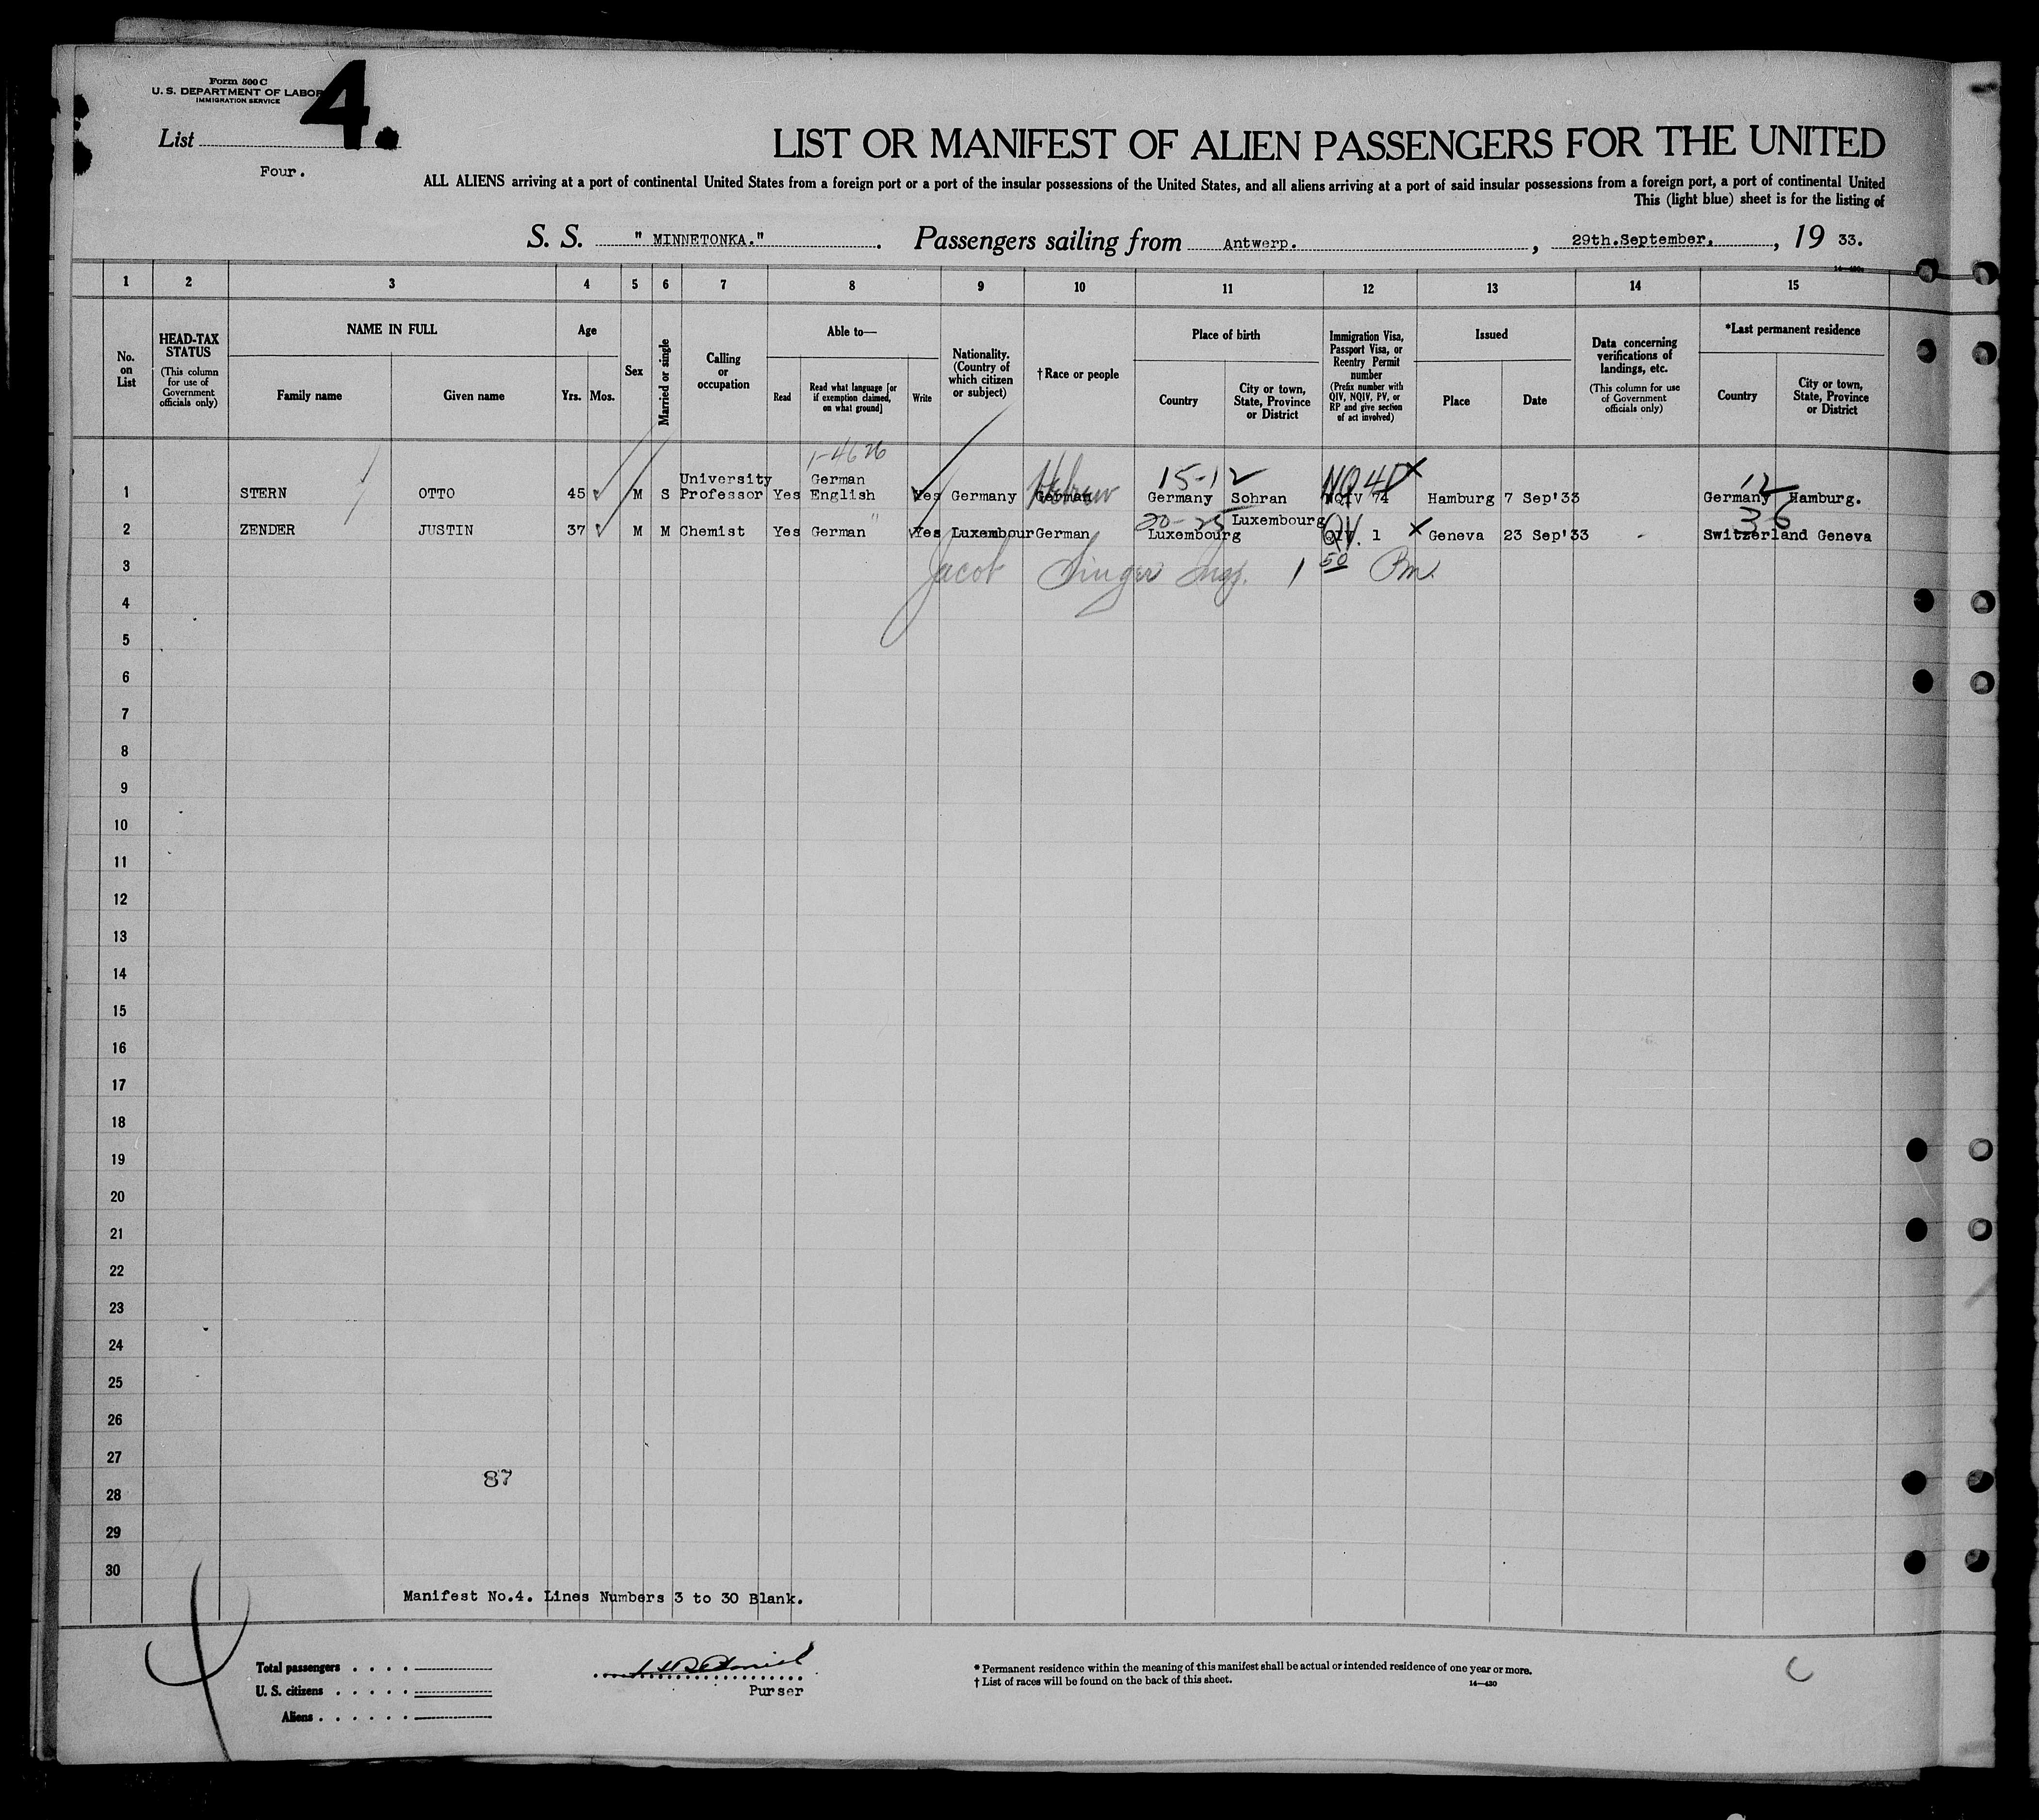 Form 500 C
U. S. DEPARTMENT OF LABOR
IMMIGRATION SERVICE
4.
List
Four.
LIST OR MANIFEST OF ALIEN PASSENGERS FOR THE UNITED
ALL ALIENS arriving at a port of continental United States from a foreign port or a port of the insular possessions of the United States, and all aliens arriving at a port of said insular possessions from a foreign port, a port of continental United
This (light blue) sheet is for the listing of
S. S. " MINNETONKA." . Passengers sailing from Antwerp. , 29th.September. , 19 33.
1 2 3 4 5 6 7 8 9 10 11 12 13 14 15
No. on List
HEAD-TAX STATUS
(This column for use of Government officials only)
NAME IN FULL
Family name Given name
Age
Yrs. Mos.
Sex
Married or single
Calling or occupation
Able to—
Read
Read what language [or if exemption claimed, on what ground]
Write
Nationality. (Country of which citizen or subject)
† Race or people
Place of birth
Country
City or town, State, Province or District
Immigration Visa, Passport Visa, or Reentry Permit number
(Prefix number with QIV, NQIV, PV, or RP and give section of act involved)
Issued
Place Date
Data concerning verifications of landings, etc.
(This column for use of Government officials only)
*Last permanent residence
Country
City or town, State, Province or District
1-4626
1 STERN OTTO 45 M S University Professor Yes German English Yes Germany German Hebrew 15-12 Germany Sohran NQ4D NQIV 74 Hamburg 7 Sep'33 12 Germany Hamburg.
2 ZENDER JUSTIN 37 M M Chemist Yes German " Yes Luxembour German 20-25 Luxembourg Luxembourg QIV. 1 Geneva 23 Sep'33 - 36 Switzerland Geneva
3 Jacob Singer Insp. 1 50 Pm.
4
5
6
7
8
9
10
11
12
13
14
15
16
17
18
19
20
21
22
23
24
25
26
27
87
28
29
30
Manifest No.4. Lines Numbers 3 to 30 Blank.
Total passengers . . . .
U. S. citizens . . . . .
Aliens . . . . . .
Purser
* Permanent residence within the meaning of this manifest shall be actual or intended residence of one year or more.
† List of races will be found on the back of this sheet.
14—430
C